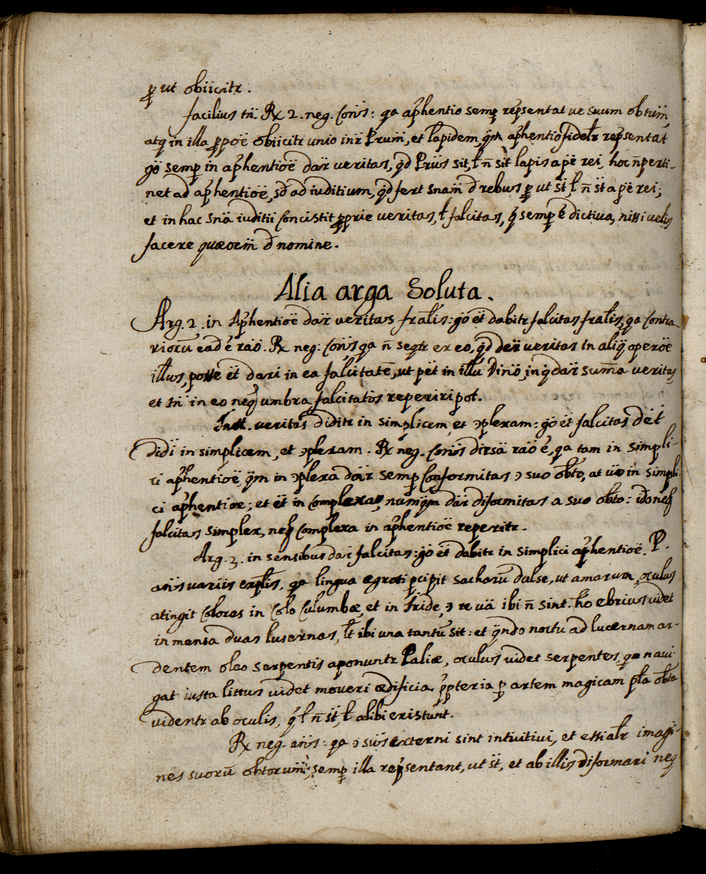 ꝑ ut obiicitr.
facilius tñ. ℞ 2. neg. Coñs: qa ap̃hentio semꝑ rep̃sentat ve suum obtum̃,
atq in illa ꝓpoẽ obiicitr unio inr̃ Prum̃, et lapidem qm̃ ap̃hentio fidelr̃ rep̃sentat
go semꝑ in ap̃hentioẽ dar̃ veritas, qd̃ sit, l ñ sit lapis a rei, hoc ñ perti-
net ad ap̃hentioẽ, sd̃ ad iuditium, qd̃ fert snam̃ d̃ rebus ꝓ ut st̃ l ñ st̃ a rei;
et in hac snã iuditii Concistit ꝓprie veritas, l̃ falcitas, q̃ semꝑ ẽ dictiva, nissi velis
facere quæoem̃ d̃ nomine.
Alia arga Soluta.
Arg. 2. in Ap̃hentioẽ dar̃ veritas fralis̃: go ẽt dabitr falcitas fralis̃, qa Contra-
riorũ eadẽ raõ. ℞ neg: Coñs qa ñ seqtr ex eo, qd̃ der̃ veritas in aliq̃ operõe
illius, posse ẽt dari in ea falcitatẽ, ut pẽt in illũ Dinõ, in q̃ dar̃ suma veritas,
et tñ in eo neq̃ umbra falcitatis reperiri pot.
Inst. veritas diditr in simplicem et ɔplexam: go ẽt falcitas dẽt
Didi in simplicem, et ɔplexam. ℞ neg. Coñs dirsã raõ ẽ, qa tam in simpli-
ci ap̃hentioẽ qm̃ in ɔplexa dar̃ semꝑ Conformitas ɔ suo obto, at vo in simpli
ci ap̃hentioẽ; et ẽt in Complexa, numqm̃ dar̃ diformitas a suo obto: idõ neq̃
falcitas simplex, neq̃ Complexa in ap̃hentioẽ reperitr.
Arg. 3. in sensibus dar̃ falcitas: go ẽt dabitr in simplici ap̃hentioẽ, P.
añs variis explis̃. qa lingua ægroti ꝑcipit sacharũ dulse, ut amarum, oculus
atingit Colores in Colo Culumbæ, et in Iride, ɔ re vã ibi ñ sint. ho ebrius videt
in mensa duas lusernas, l̃t ibi una tantũ sit: et qñdo noctu ad lucernam ar-
dentem oleo serpentis aponuntr Paliæ, oculus videt serpentes, qa navi
gat iusta littus videt moveri ædificia, ꝓpteria ꝑ artem magicam pla obta
videntr ab oculis, q̃ l̃ ñ st̃, l̃ alibi existunt.
℞ neg. añs: qa ɔ sus̃ externi sint intuitivi, et essialr̃ imagi-
nes suorũ obtorum̃, semꝑ illa rep̃sentant, ut st̃, et ab illis diformari neq̃